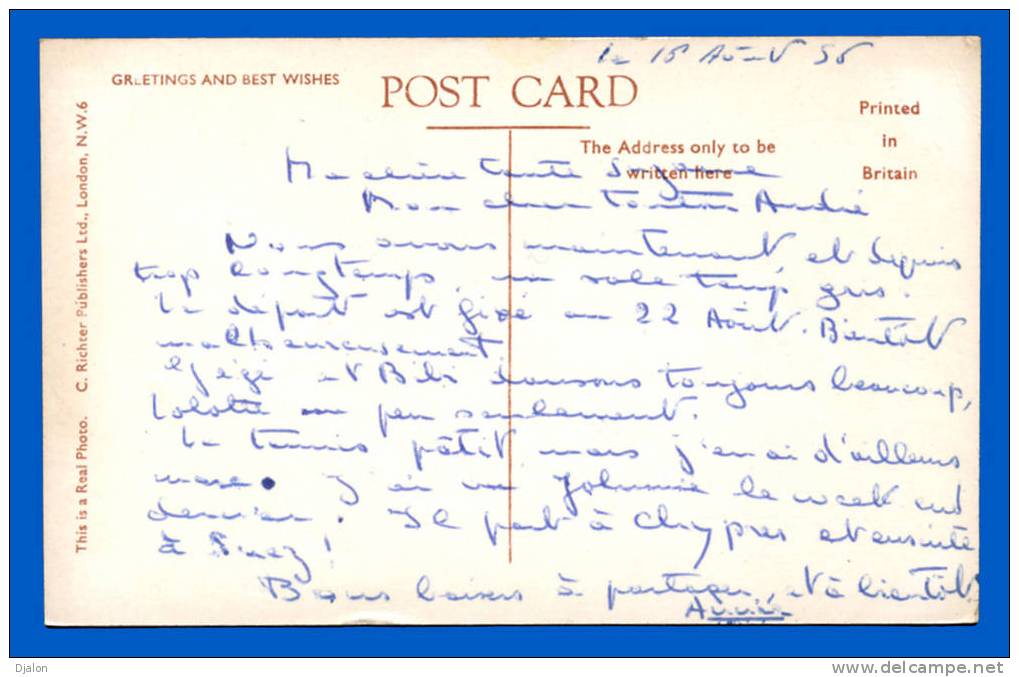 le 15 Août 56
GREETINGS AND BEST WISHES
POST CARD
Printed
in
Britain
The Address only to be
written here
This is a Real Photo. C. Richter Publishers Ltd., London, N.W.6
Ma chère tante Suzanne
Mon cher tonton André
Nous avons maintenant, et depuis
trop longtemps, un sale temps gris.
Le départ est fixé au 22 Août. Bientôt
malheureusement.
Gégé et Bibi dansons toujours beaucoup,
un peu seulement.
Le tennis pâtit mais j'en ai d'ailleurs
marre. J'ai vu Johnnie le week end
dernier. Il part à Chypres et ensuite
à Suez!
Bons baisers à partager, et à bientôt.
Annie
Djalon
www.delcampe.net